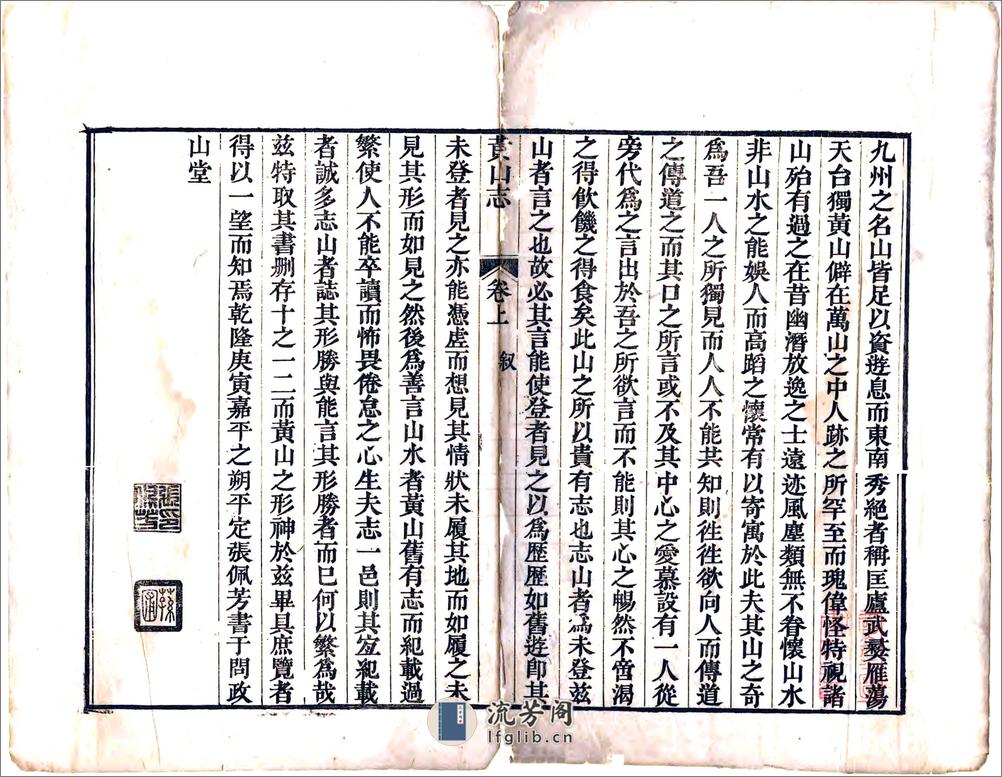 九州之名山皆足以資遊息而東南秀絕者稱匡廬武夷雁蕩
天台獨黃山僻在萬山之中人跡之所罕至而瑰偉怪特視諸
山殆有過之在昔幽潛放逸之士遠迹風塵類無不眷懷山水
非山水之能娛人而高蹈之懷常有以寄寓於此夫其山之奇
爲吾一人之所獨見而人人不能共知則徃徃欲向人而傳道
之傳道之而其口之所言或不及其中心之愛慕設有一人從
旁代爲之言出於吾之所欲言而不能則其心之暢然不啻渴
之得飲饑之得食矣此山之所以貴有志也志山者爲未登茲
山者言之也故必其言能使登者見之以爲歷歷如舊遊卽其
黃山志
卷上
叙
未登者見之亦能憑虛而想見其情狀未履其地而如履之未
見其形而如見之然後爲善言山水者黃山舊有志而紀載過
繁使人不能卒讀而怖畏倦怠之心生夫志一邑則其紀載
者誠多志山者誌其形勝與能言其形勝者而已何以繁爲哉
茲特取其書刪存十之一二而黃山之形神於茲畢具庶覽者
得以一望而知焉乾隆庚寅嘉平之朔平定張佩芳書于問政
山堂
張佩芳印
蓀圃
流芳阁
lfglib.cn